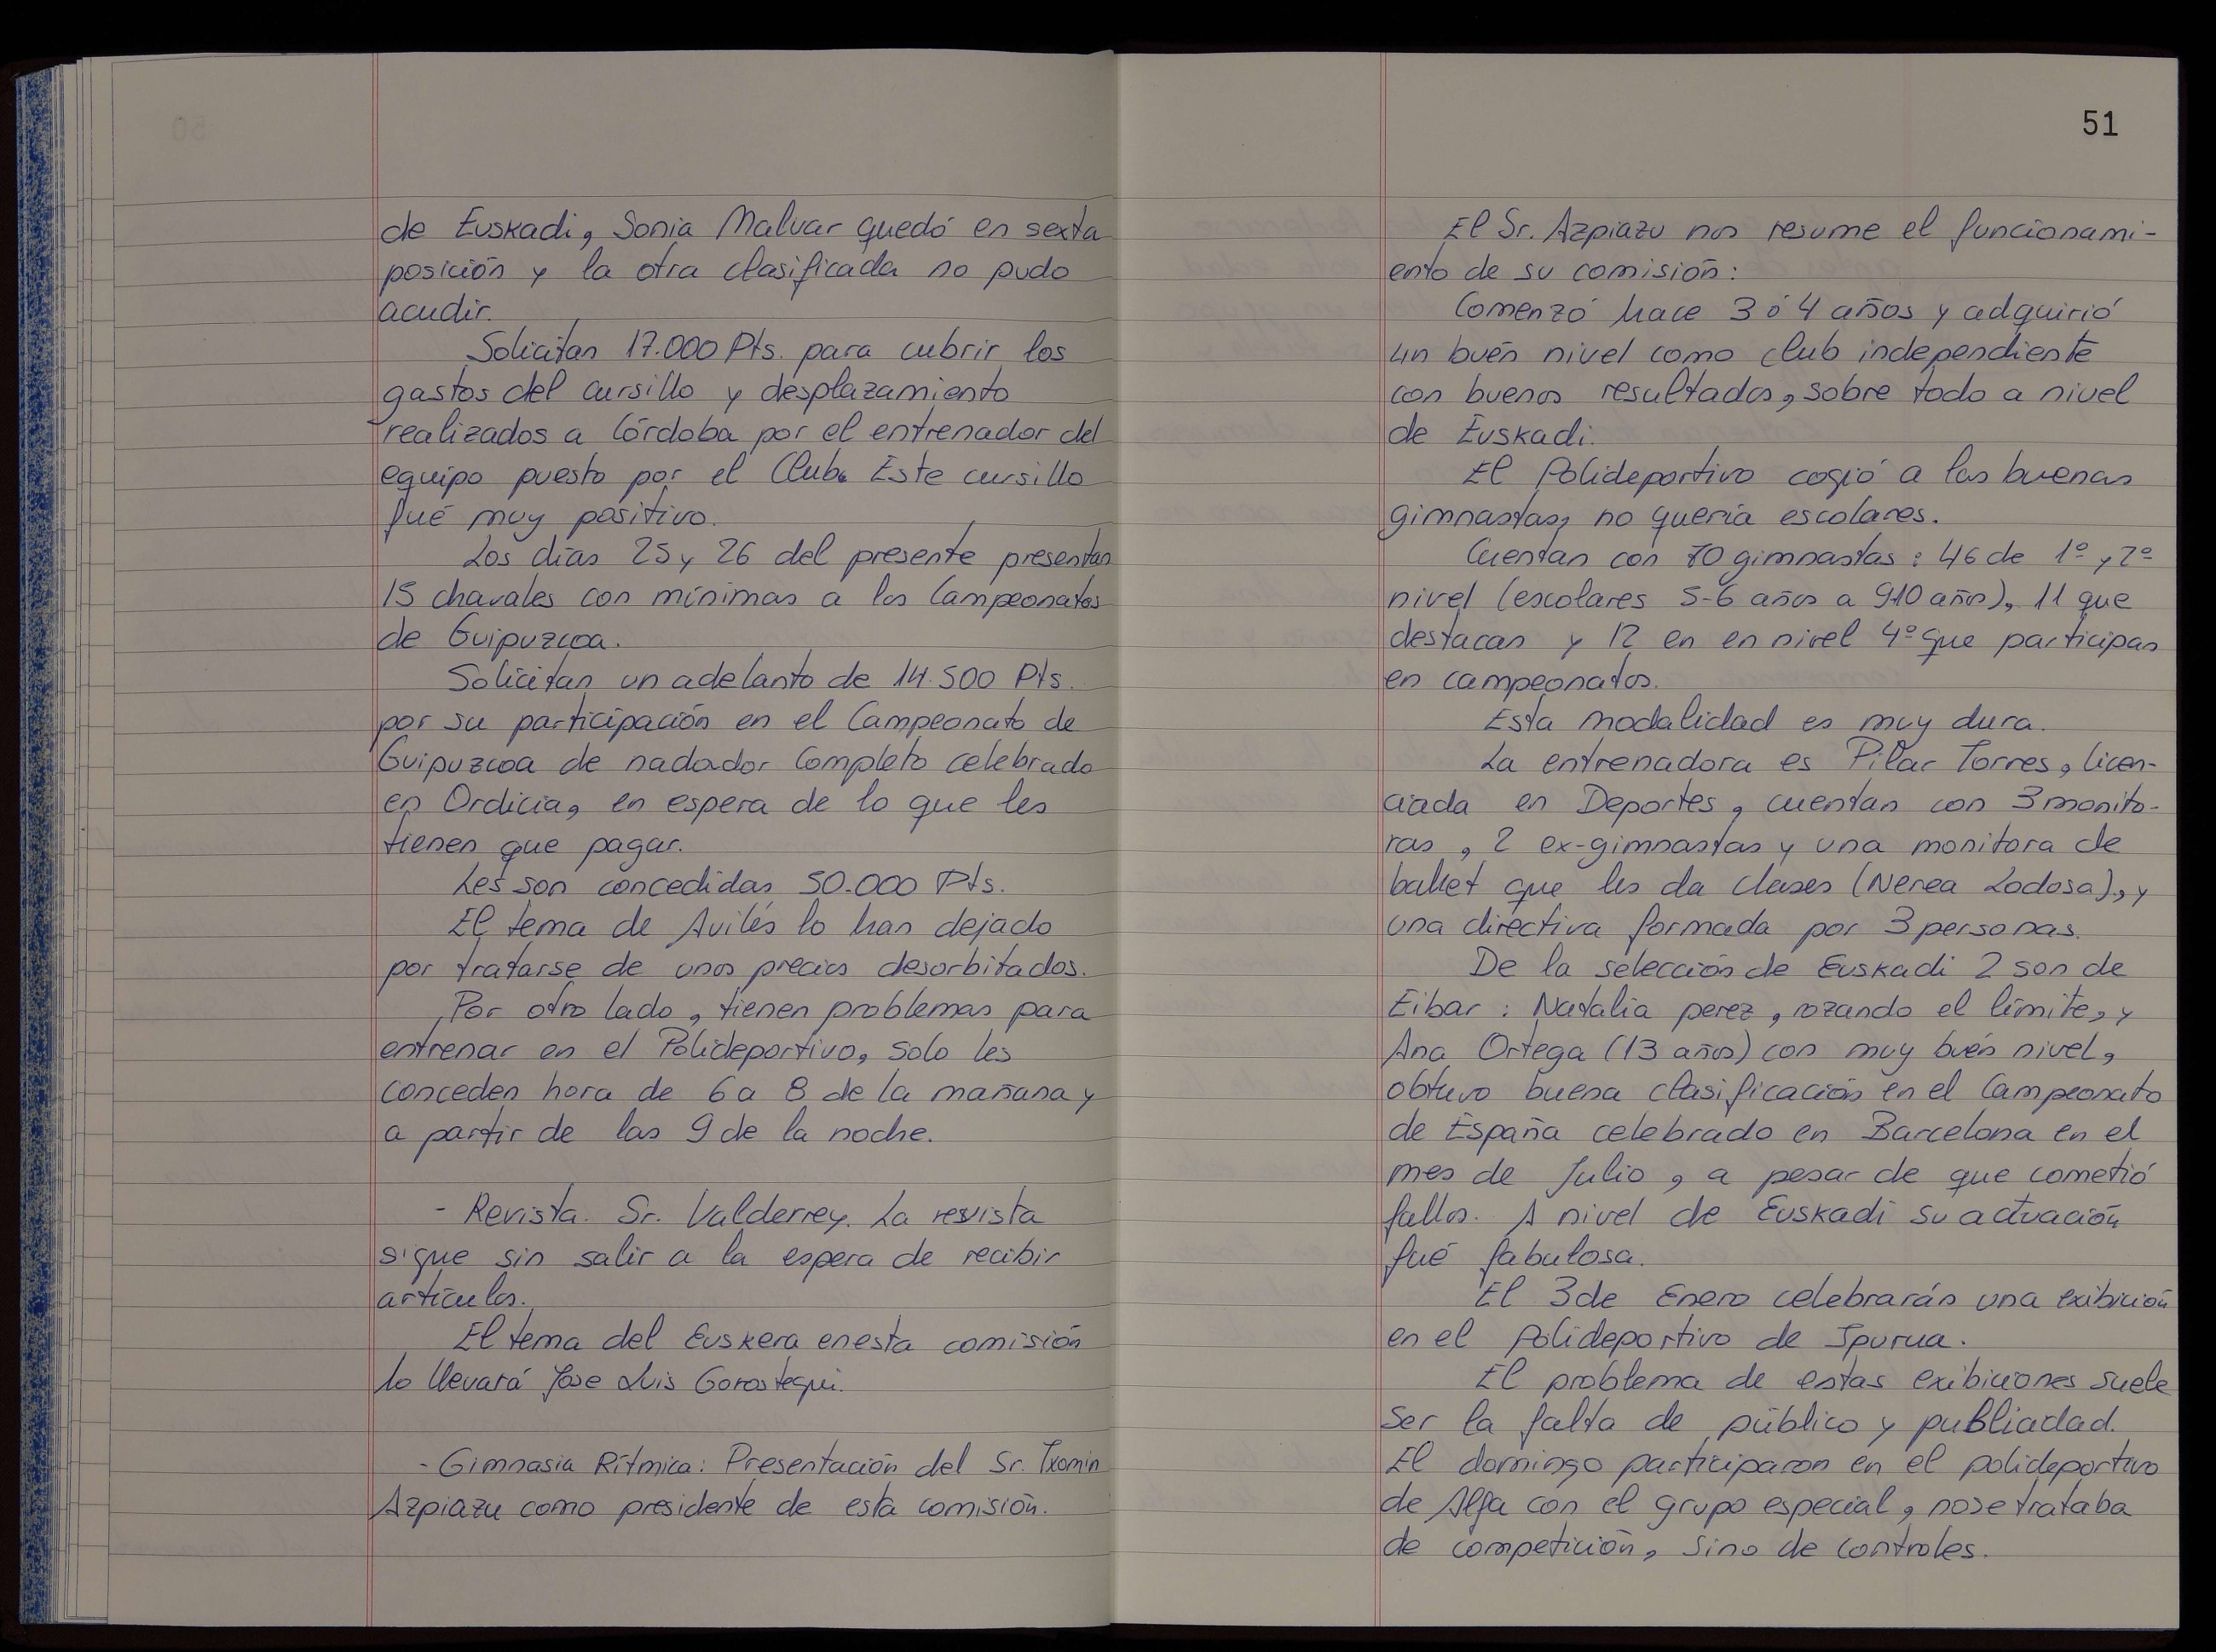 de Euskadi, Sonia Malvar quedó en sexta
posición y la otra clasificada no pudo
acudir.
Solicitan 17.000 Pts. para cubrir los
gastos del cursillo y desplazamiento
realizados a Córdoba por el entrenador del
equipo puesto por el Club. Este cursillo
fué muy positivo.
Los días 25 y 26 del presente presentan
15 chavales con mínimas a los Campeonatos
de Guipuzcoa.
Solicitan un adelanto de 14.500 Pts.
por su participación en el Campeonato de
Guipuzcoa de nadador Completo celebrado
en Ordicia, en espera de lo que les
tienen que pagar.
Les son concedidas 50.000 Pts.
El tema de Avilés lo han dejado
por tratarse de unos precios desorbitados.
Por otro lado, tienen problemas para
entrenar en el Polideportivo, solo les
conceden hora de 6 a 8 de la mañana y
a partir de las 9 de la noche.
- Revista. Sr. Valderrey. La revista
sigue sin salir a la espera de recibir
artículos.
El tema del Euskera en esta comisión
lo llevará Jose Luis Gorostegui.
- Gimnasia Rítmica: Presentación del Sr. Txomin
Azpiazu como presidente de esta comisión.
51
El Sr. Azpiazu nos resume el funcionami-
ento de su comisión:
Comenzó hace 3 ó 4 años y adquirió
un buén nivel como club independiente
con buenos resultados, sobre todo a nivel
de Euskadi.
El Polideportivo cogió a las buenas
gimnastas, no quería escolares.
Cuentan con 70 gimnastas: 46 de 1º y 2º
nivel (escolares 5-6 años a 9-10 años), 11 que
destacan y 12 en en nivel 4º que participan
en campeonatos.
Esta modalidad es muy dura.
La entrenadora es Pilar Torres, licen-
ciada en Deportes, cuentan con 3 monito-
ras, 2 ex-gimnastas y una monitora de
ballet que les da clases (Nerea Lodosa), y
una directiva formada por 3 personas.
De la selección de Euskadi 2 son de
Eibar: Natalia perez, rozando el límite, y
Ana Ortega (13 años) con muy buén nivel,
obtuvo buena clasificación en el Campeonato
de España celebrado en Barcelona en el
mes de Julio, a pesar de que cometió
fallos. A nivel de Euskadi su actuación
fué fabulosa.
El 3 de Enero celebrarán una exibición
en el Polideportivo de Ipurua.
El problema de estas exibiciones suele
ser la falta de público y publicidad.
El domingo participaron en el polideportivo
de Alfa con el grupo especial, no se trataba
de competición, sino de controles.